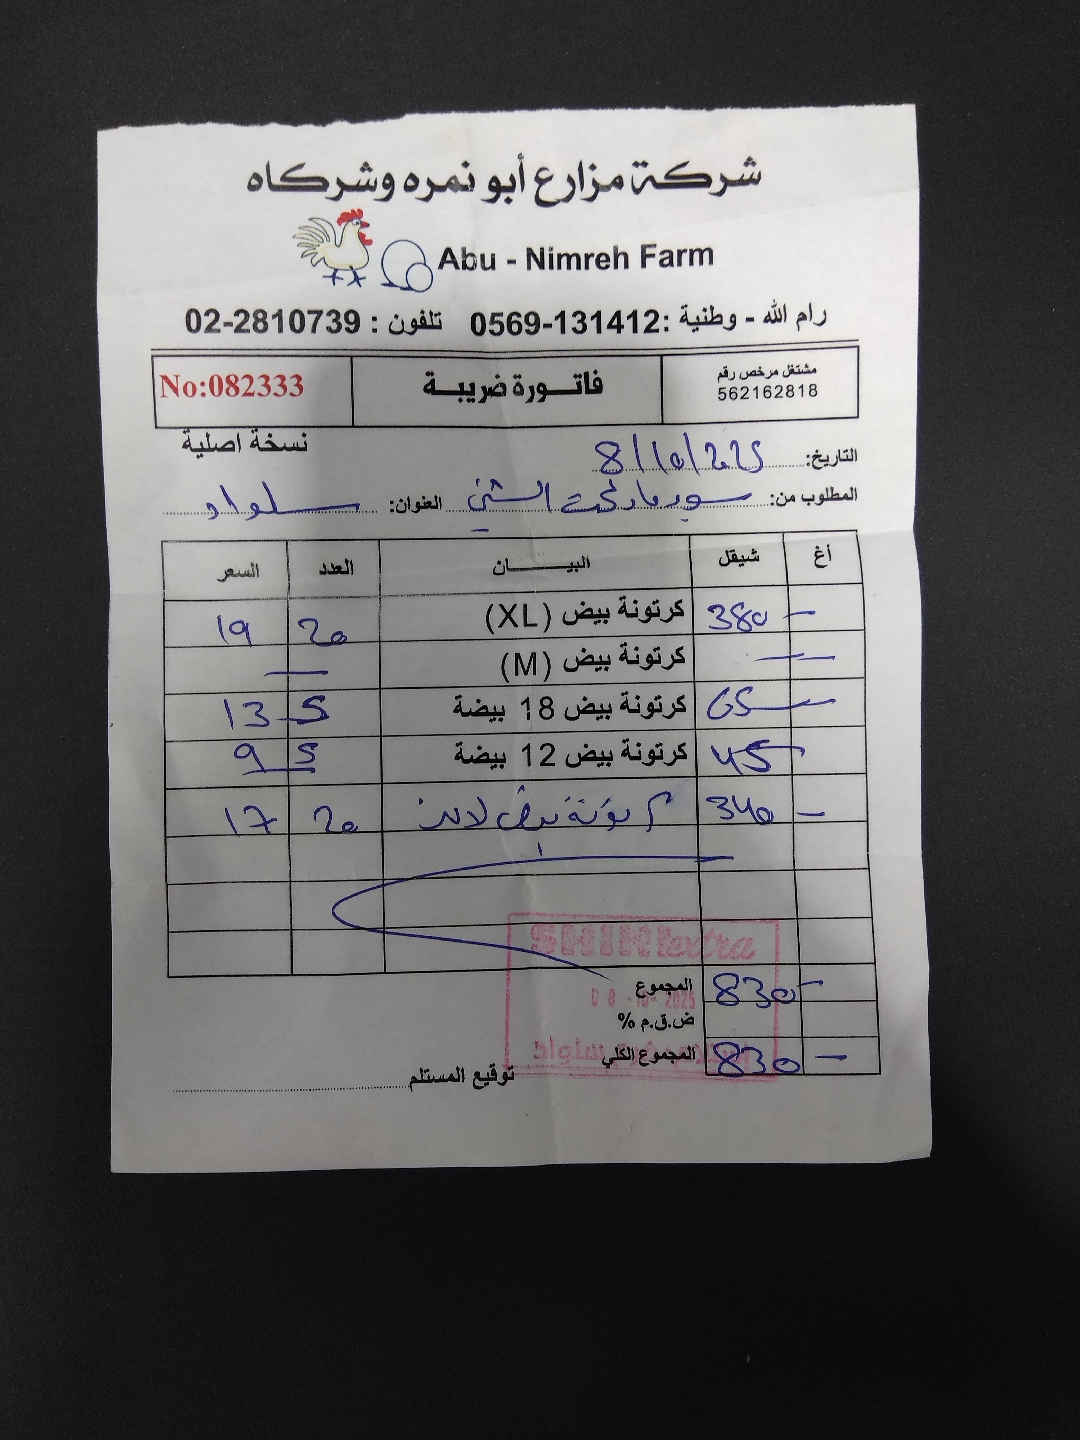 شركة مزارع أبو نمره وشركاه
Abu - Nimreh Farm
رام الله - وطنية :0569-131412 تلفون : 02-2810739
مشتغل مرخص رقم
562162818
فاتورة ضريبة
No:082333
نسخة اصلية
التاريخ: 8/10/2025
المطلوب من: سوبر ماركت الشني العنوان: سلواد
أغ شيقل البيــــــان العدد السعر
— 380 كرتونة بيض (XL) 20 19
— كرتونة بيض (M) —
— 65 كرتونة بيض 18 بيضة 5 13
45 كرتونة بيض 12 بيضة 5 9
— 340 كرتونة بيض لارج 20 17
SHINI extra
08 -10- 2025
المجموع 830 —
ض.ق.م %
سلواد
المجموع الكلي 830 —
توقيع المستلم